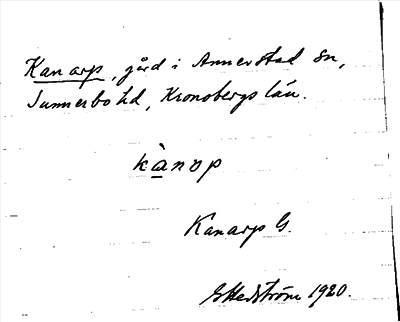 Kanarp, gård i Annerstad sn,
Sunnerbo hd, Kronobergs län.
kànop
Kanarp G.
G Hedström 1920.